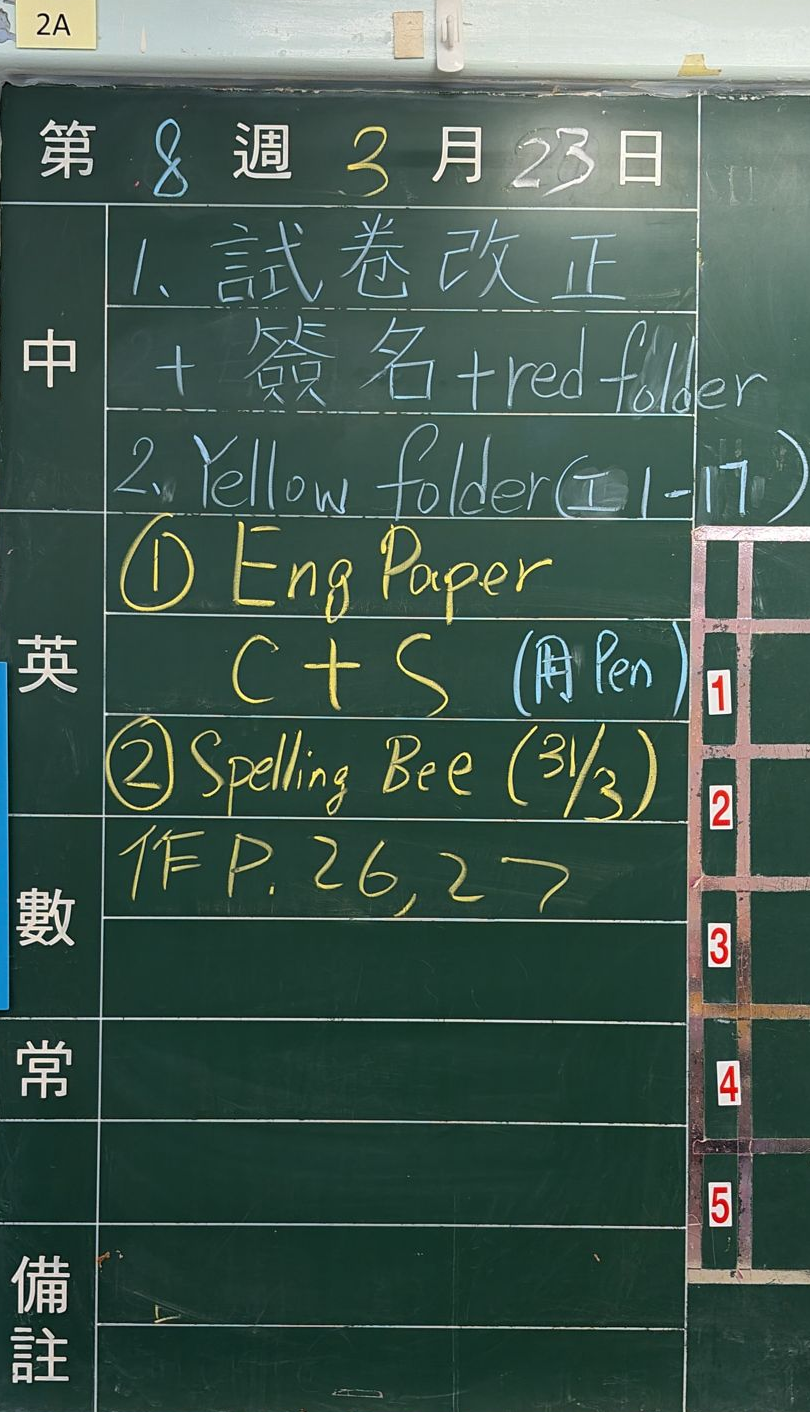 2A
第 8 週 3 月 23 日
中
1、試卷改正
+ 簽名+red folder
2、Yellow folder(工1-17)
英
① Eng Paper
C + S (用 Pen)
② Spelling Bee (31/3)
數
作 P. 26, 27
常
備註
1
2
3
4
5